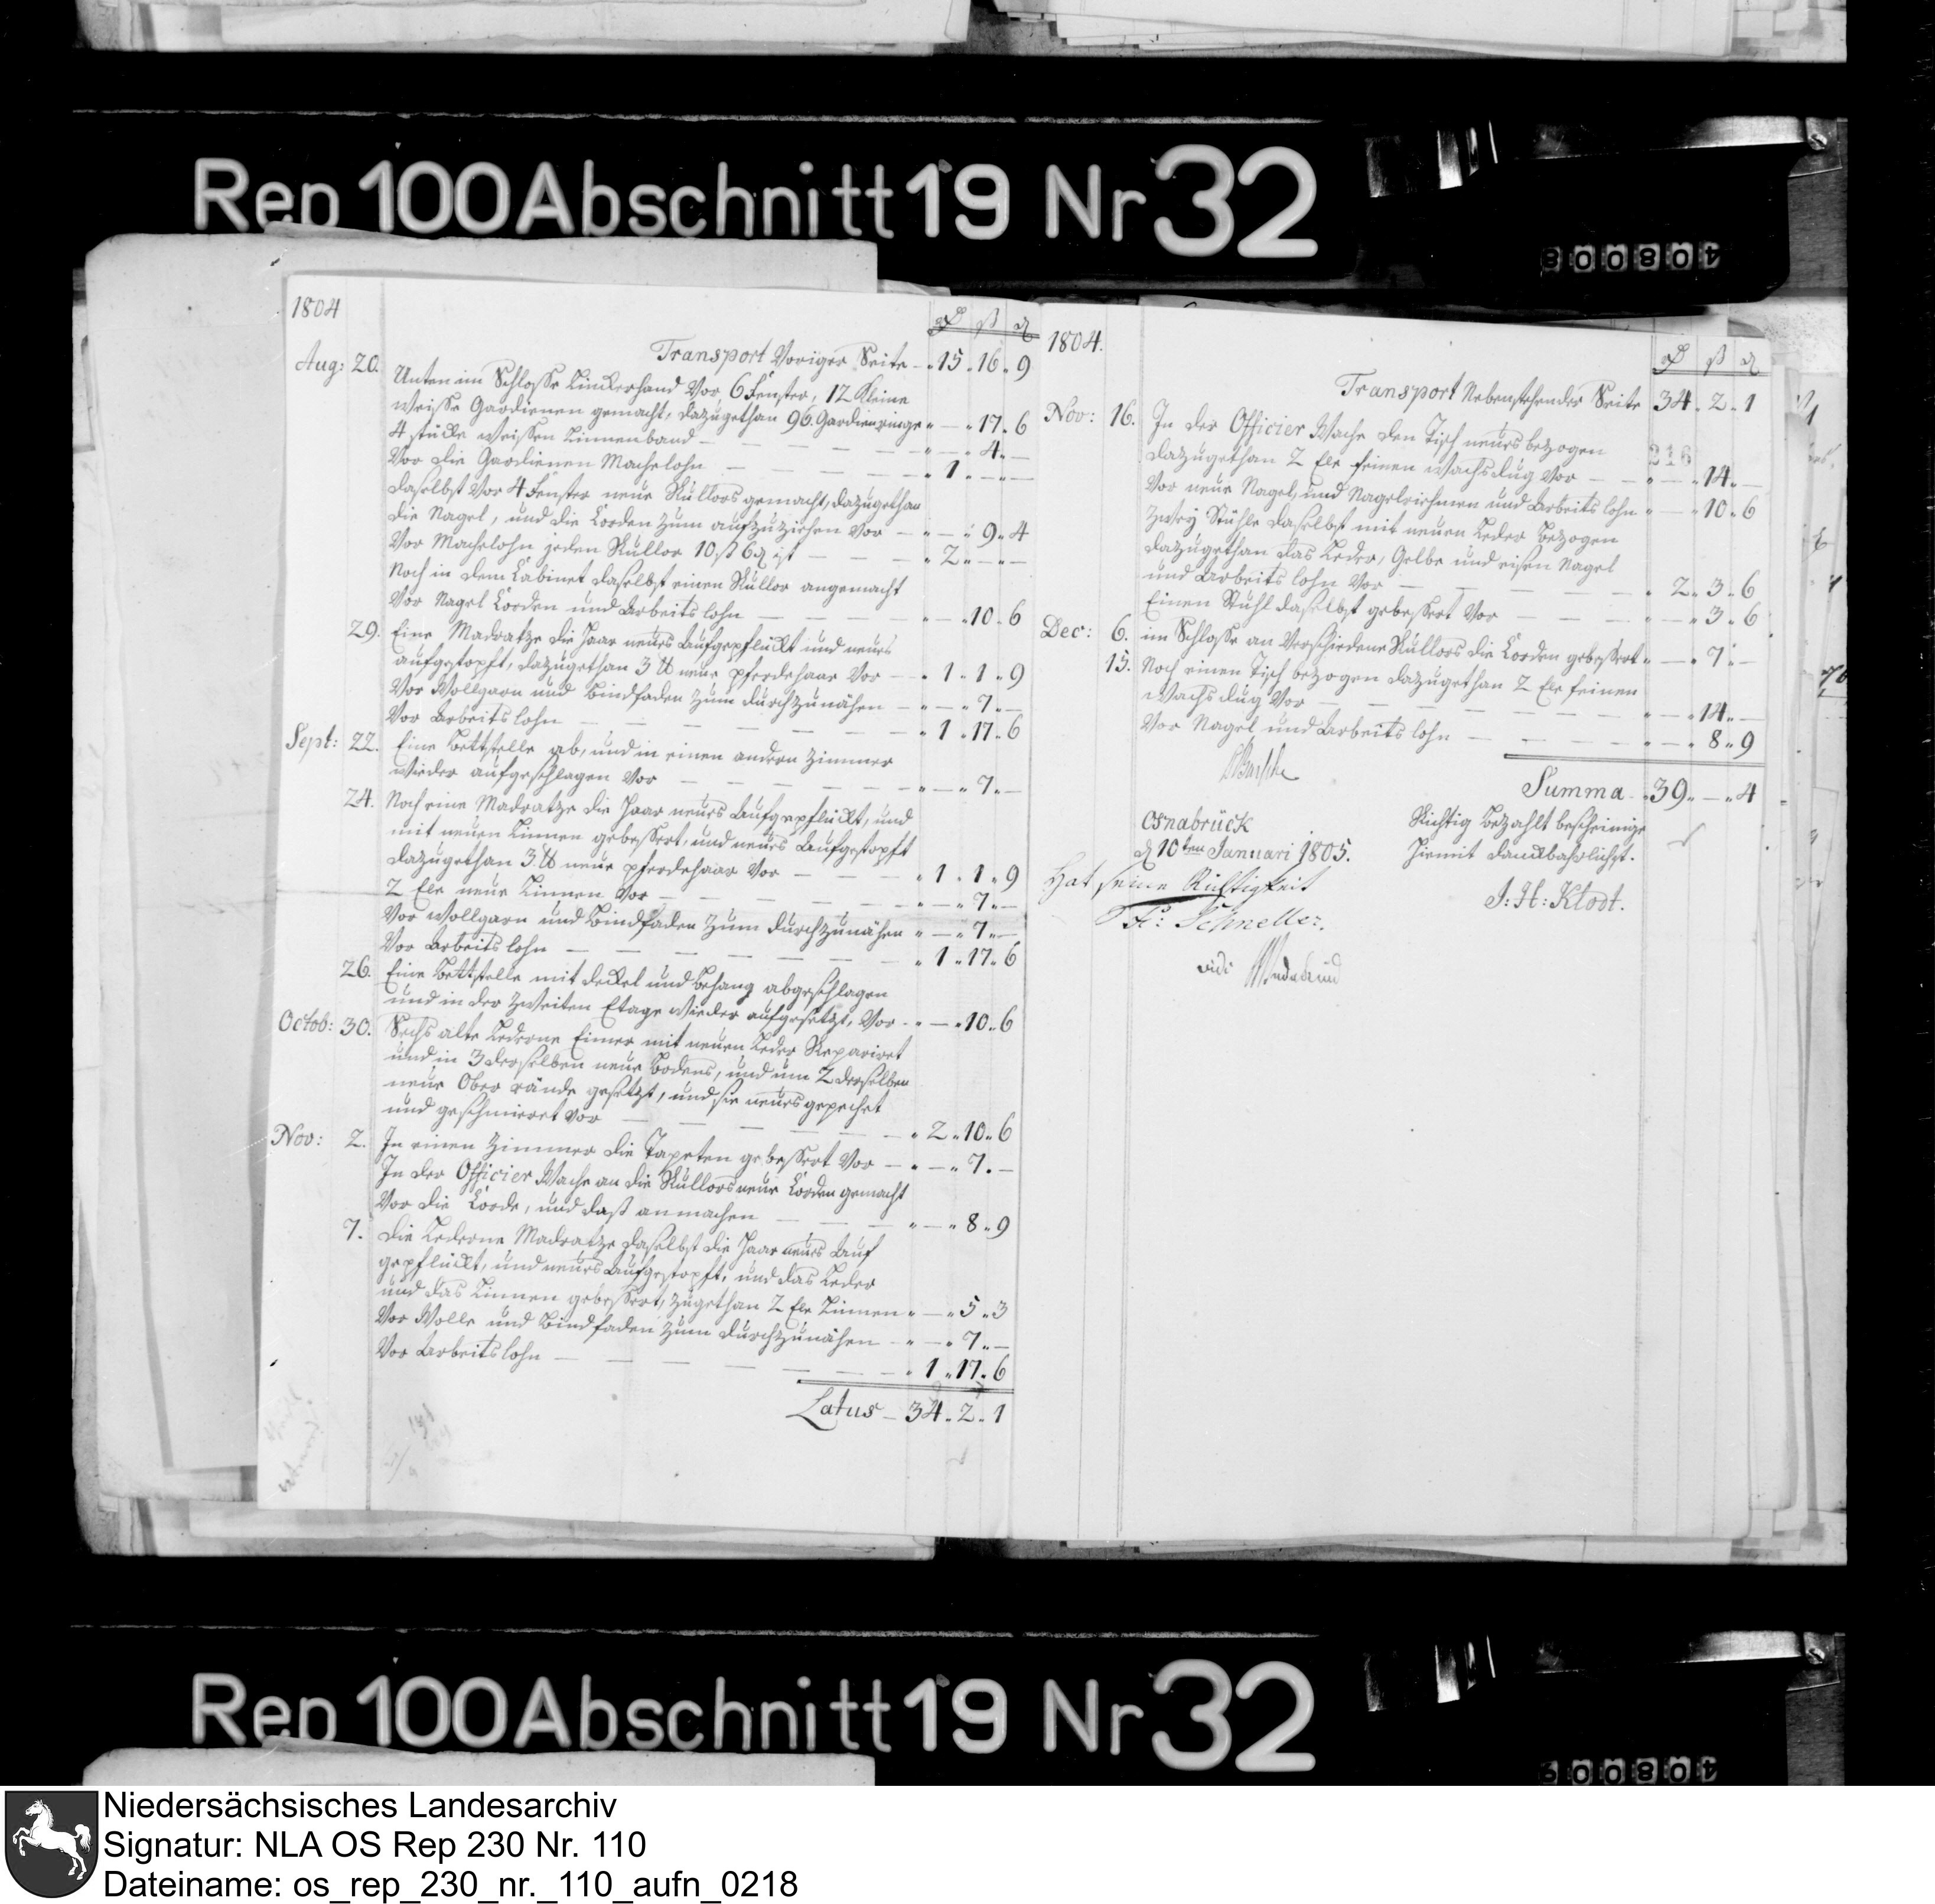 Rep 100 Abschnitt 19 Nr 32
408008
1804
Transport Voriger Seite - 15 " 16 " 9
Aug: 20. Unten im Schlosse Linckerhand Vor 6 Fenster, 12 Kleine
Weisse Gardienen gemacht, dazugethan 96. Gardienringe " — " 17 " 6
4 stücke Weissen Linnenband — — " — " 4 " —
Vor die Gardienen Machelohn — — " 1 " — " —
Daselbst Vor 4 Fenster neue Rullors gemacht, dazugethan
die Nagel, und die Corden zum aufzuziehen Vor — " — " 9 " 4
Vor Machelohn jeden Rullor 10 ß 6 ₰ ist — — " 2 " — " —
Noch in dem Cabinet daselbst einen Rullor angemacht
Vor Nagel Corden und Arbeitslohn — — " — " 10 " 6
29. Eine Madratze die Haar neues Aufgepflückt und neues
aufgestopft, dazugethan 3 ℔ neue pferdehaar Vor — " 1 " 1 " 9
Vor Wollgarn und Bindfaden zum durchzunähen — " — " 7 " —
Vor Arbeitslohn — — " 1 " 17 " 6
Sept: 22. Eine Bettstelle ab, und in einen andern Zimmer
wieder aufgeschlagen Vor — — " — " 7 " —
24. Noch eine Madratze die Haar neues Aufgepflückt, und
mit neuen Linnen gebessert, und neues Aufgestopft
dazugethan 3 ℔ neue pferdehaar Vor — — " 1 " 1 " 9
2 Ele neue Linnen Vor — — " — " 7 " —
Vor Wollgarn und Bindfaden zum durchzunähen " — " 7 " —
Vor Arbeitslohn — — " 1 " 17 " 6
26. Eine Bettstelle mit Deckel und Behang abgeschlagen
und in der Zweiten Etage wieder aufgesetzt, Vor - " — " 10 " 6
Octob: 30. Sechs alte Lederne Eimer mit neuen Leder Repariret
und in 3 derselben neue Bodens, und um 2 derselben
neue Ober rände gesetzt, und sie neues gepechet
und geschmieret Vor — — " 2 " 10 " 6
Nov: 2. In einen Zimmer die Tapeten gebessert Vor — " — " 7 " —
In der Officier Wache an die Rullors neue Corden gemacht
Vor die Corde, und daß anmachen — — " — " 8 " 9
7. Die Lederne Madratze daselbst die Haar neues Auf
gepflückt, und neues Aufgestopft, und das Leder
und das Linnen gebessert, zugethan 2 Ele Linnen " — " 5 " 3
Vor Wolle und Bindfaden zum durchzunähen — " — " 7 " —
Vor Arbeitslohn — — " 1 " 17 " 6
Latus - 34 " 2 " 1
1804.
Transport Nebenstehender Seite 34 " 2 " 1
216
Nov: 16. In der Officier Wache den Tisch neues bezogen
dazugethan 2 Ele feinen Wachsdug Vor — " — " 14 " —
Vor neue Nagel, und Nagelriehmen und Arbeitslohn " — " 10 " 6
Zwey Stühle daselbst mit neuen Leder bezogen
dazugethan das Leder, Gelbe und eisen Nagel
und Arbeitslohn Vor — — " 2 " 3 " 6
Einen Stuhl daselbst gebessert Vor — — " — " 3 " 6
Dec: 6. im Schlosse an Verschiedene Rullors die Corden gebessert " — " 7 " —
15. Noch einen Tisch bezogen dazugethan 2 Ele feinen
Wachsdug Vor — — " — " 14 " —
Vor Nagel und Arbeitslohn — — " — " 8 " 9
Summa - 39 " — " 4
Osnabrück
d 10ten Januari 1805.
Richtig Bezahlt bescheinige
Hiemit Danckbahrlichst.
J: H: Klodt.
Hat seine Richtigkeit
Fr: Schneller.
vidi
Rep 100 Abschnitt 19 Nr 32
408009
Niedersächsisches Landesarchiv
Signatur: NLA OS Rep 230 Nr. 110
Dateiname: os_rep_230_nr._110_aufn_0218